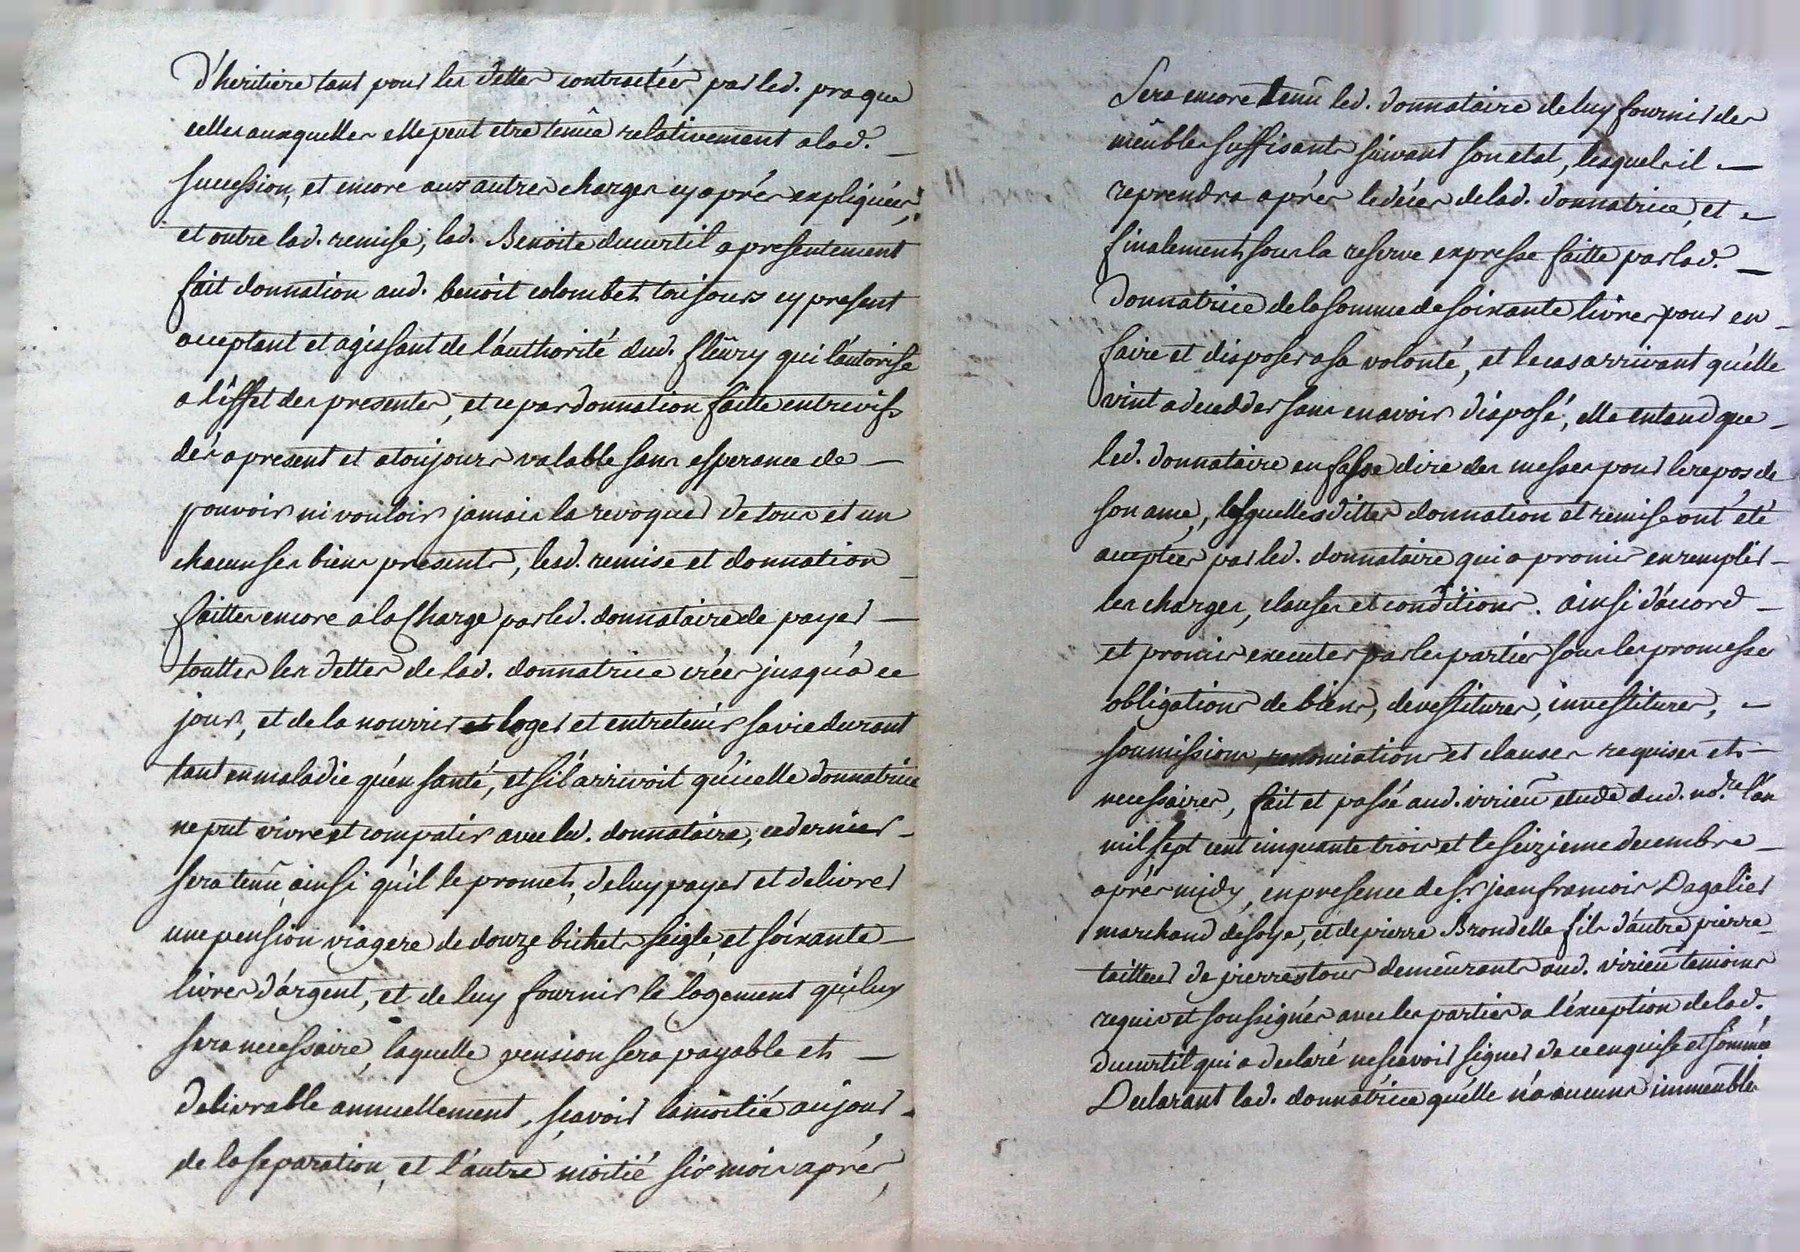 d'heritiere tant pour les dettes contractées par led. pra que
celles auxquelles elle peut etre tenüe relativement a lad.
succession, et encore aux autres charges cy aprés expliquées,
et outre lad. remise, lad. Benoite ducurtil a presentement
fait donnation aud. benoit colombet toujours cy present
acceptant et agissant de l'authorité dud. fleury qui l'autorise
a l'éffet des presentes, et ce par donnation faitte entrevifs
dés a present et a toujours valable sans esperance de
pouvoir ni vouloir jamais la revoquer de tous et un
chacun ses biens presents, lesd. remise et donnation
faittes encore a la Charge par led. donnataire de payer
touttes les dettes de lad. donnatrice créés jusqu'a ce
jour, et de la nourrir et loger et entretenir sa vie durant
tant en maladie qu'en santé, et s'il arrivoit qu'icelle donnatrice
ne put vivre et compatir avec led. donnataire, ce dernier
sera tenü ainsi qu'il le promet, de luy payer et delivrer
une pension viagere de douze bichets seigle, et soixante
livres d'argent, et de luy fournir le logement qui luy
sera necessaire, laquelle pension sera payable et
delivrable annuellement, sçavoir la moitié au jour
de la separation, et l'autre moitié six mois aprés,
Sera encore tenü led. donnataire de luy fournir des
meubles suffisants suivant son etat, lesquels il
reprendra aprés le décés de lad. donnatrice, et
finalement sous la reserve expresse faitte par lad.
donnatrice de la somme de soixante livres pour en
faire et disposer a sa volonté, et le cas arrivant qu'elle
vint a decedder sans en avoir disposé, elle entend que
led. donnataire en fasse dire des messes pour le repos de
son ame, lesquelles dittes donnation et remise ont été
acceptées par led. donnataire qui a promis en remplir
les charges, clauses et conditions. ainsi d'acord
et promis executer par les parties sous les promesses
obligations de biens, devestitures, investitures,
soumissions, renonciations et clauses requises et
necessaires, fait et passé aud. virieu etude dud. no.re l'an
mil sept cent cinquante trois et le seizieme decembre
aprés midy, en presence de sr. jean francois Dagalier
marchand de soye, et de pierre Brondelle fils d'autre pierre
tailleur de pierres tous demeurants aud. virieu temoins
requis et soussignés avec les parties a l'exception de lad.
ducurtil qui a declaré ne scavoir signer de ce enquise et sommée
Declarant lad. donnatrice qu'elle n'a aucuns immeubles